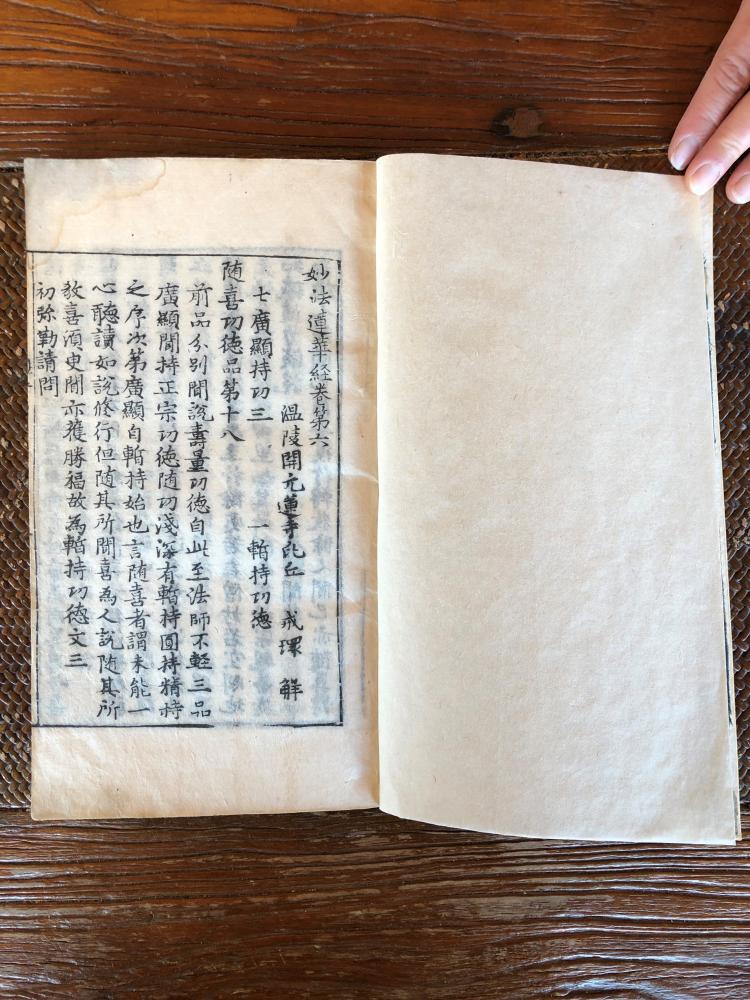 妙法蓮華經卷第六
温陵開元蓮寺比丘 戒環 解
七廣顯持功三 一暫持功德
随喜功德品第十八
前品分別聞說壽量功德自此至法師不輕三品
廣顯聞持正宗功德随功淺深有暫持圓持精持
之序次第廣顯自暫持始也言随喜者謂未能一
心聽讀如說修行但随其所聞喜為人說随其所
教喜須臾聞亦獲勝福故為暫持功德文三
初弥勒請問